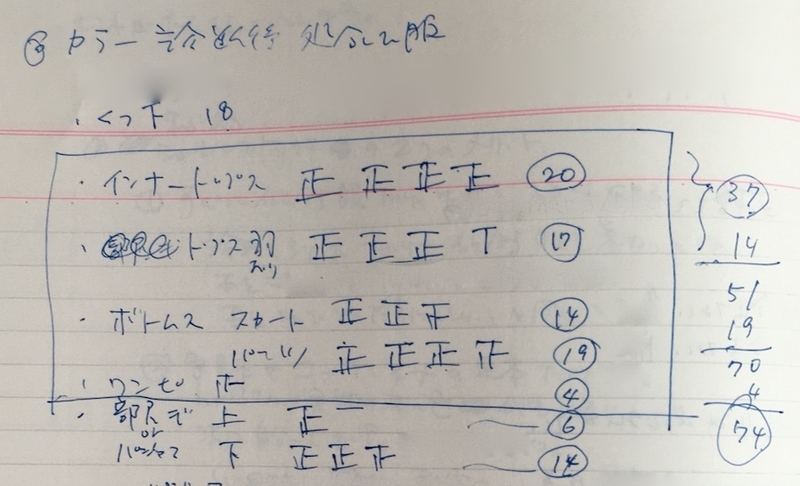 カラー診断後 処分の服
・くつ下 18
・インナートップス 正 正 正 正 20
・トップス 羽おり 正 正 正 T 17
・ボトムス スカート 正 正 正 14
パンツ 正 正 正 正 19
・ワンピ 正 4
・部屋ぎ or パジャマ 上 正 一 6
下 正 正 正 14
37
14
51
19
70
4
74